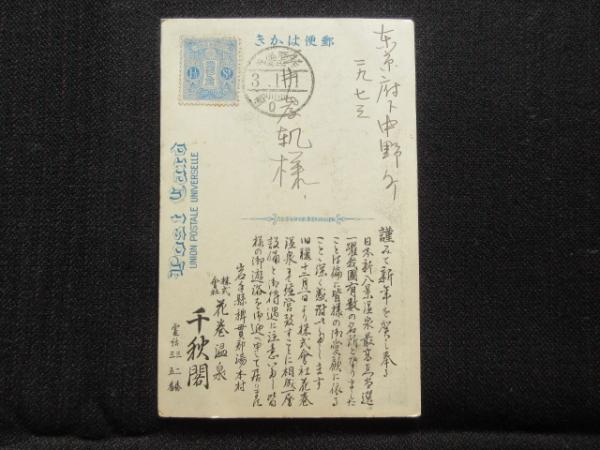 郵便はかき
1½ Sn
3.1.1
東京府下中野町
一九七三
井孝帆様
UNION POSTALE UNIVERSELLE
謹みて新年を賀し奉る
日本新八景温泉最高点当選
一躍我国有数の名所となりました
ことは偏に皆様の御愛顧に依る
ことゝ深く感謝
旧臘十二月一日より株式会社花巻
温泉 経営致すことに相成一層
設備と御待遇に注意 皆
様の御遊浴を御迎へ申して居ります
岩手縣稗貫郡湯本村
株式会社 花巻温泉
千秋閣
電話 二番 三五番